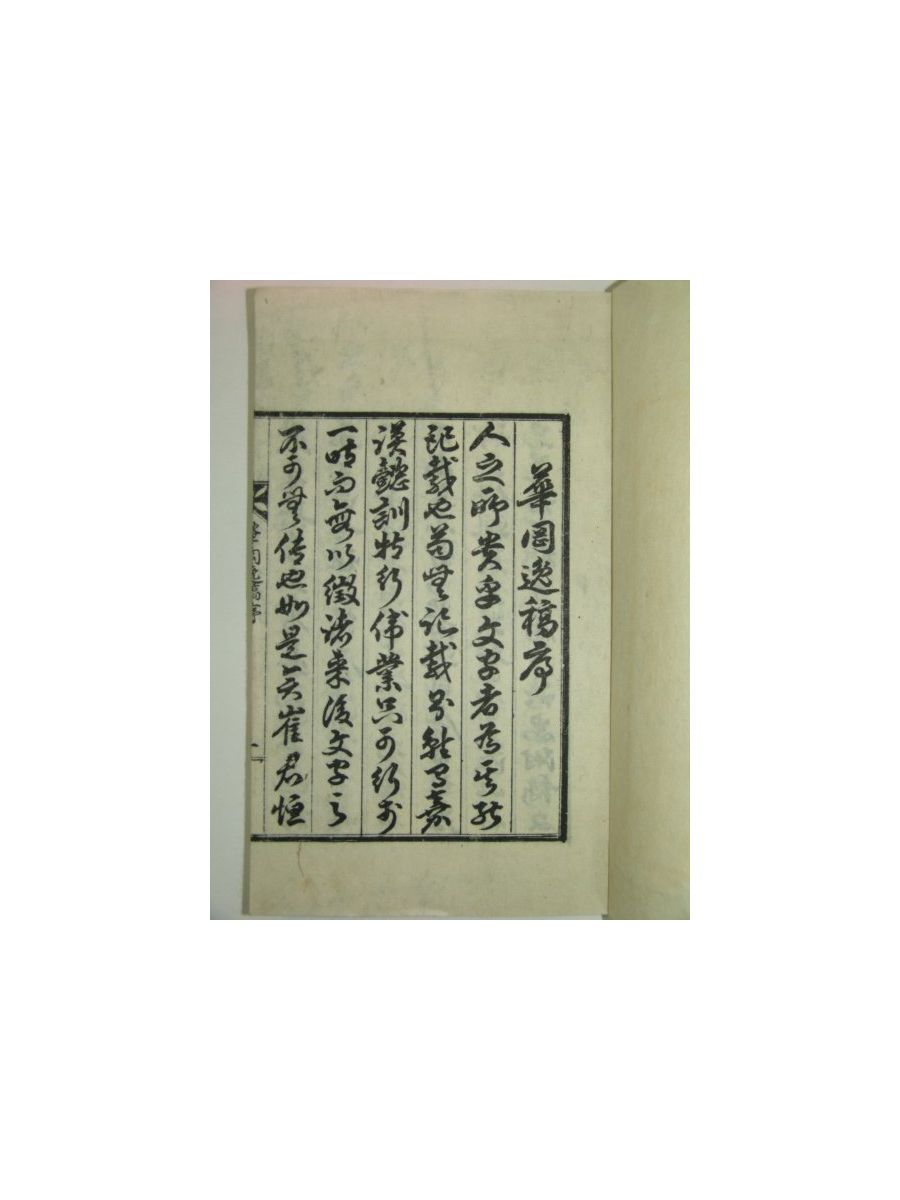 華岡逸稿序
人之所貴乎文字者為其能
記載也苟無記載罔能有嘉
謨懿訓特行偉業只可行於
一時而無以徵諸來後文字之
不可無传也如是矣崔君恒
華岡逸稿序
一